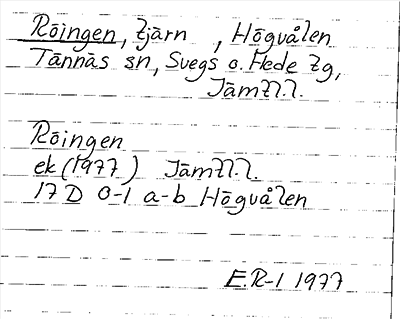 Röingen, tjärn , Högvålen
Tännäs sn, Svegs o. Hede tg,
Jämtl.l.
Röingen
ek (1977) Jämtl.l.
17 D 0-1 a-b Högvålen
E.R-l 1977